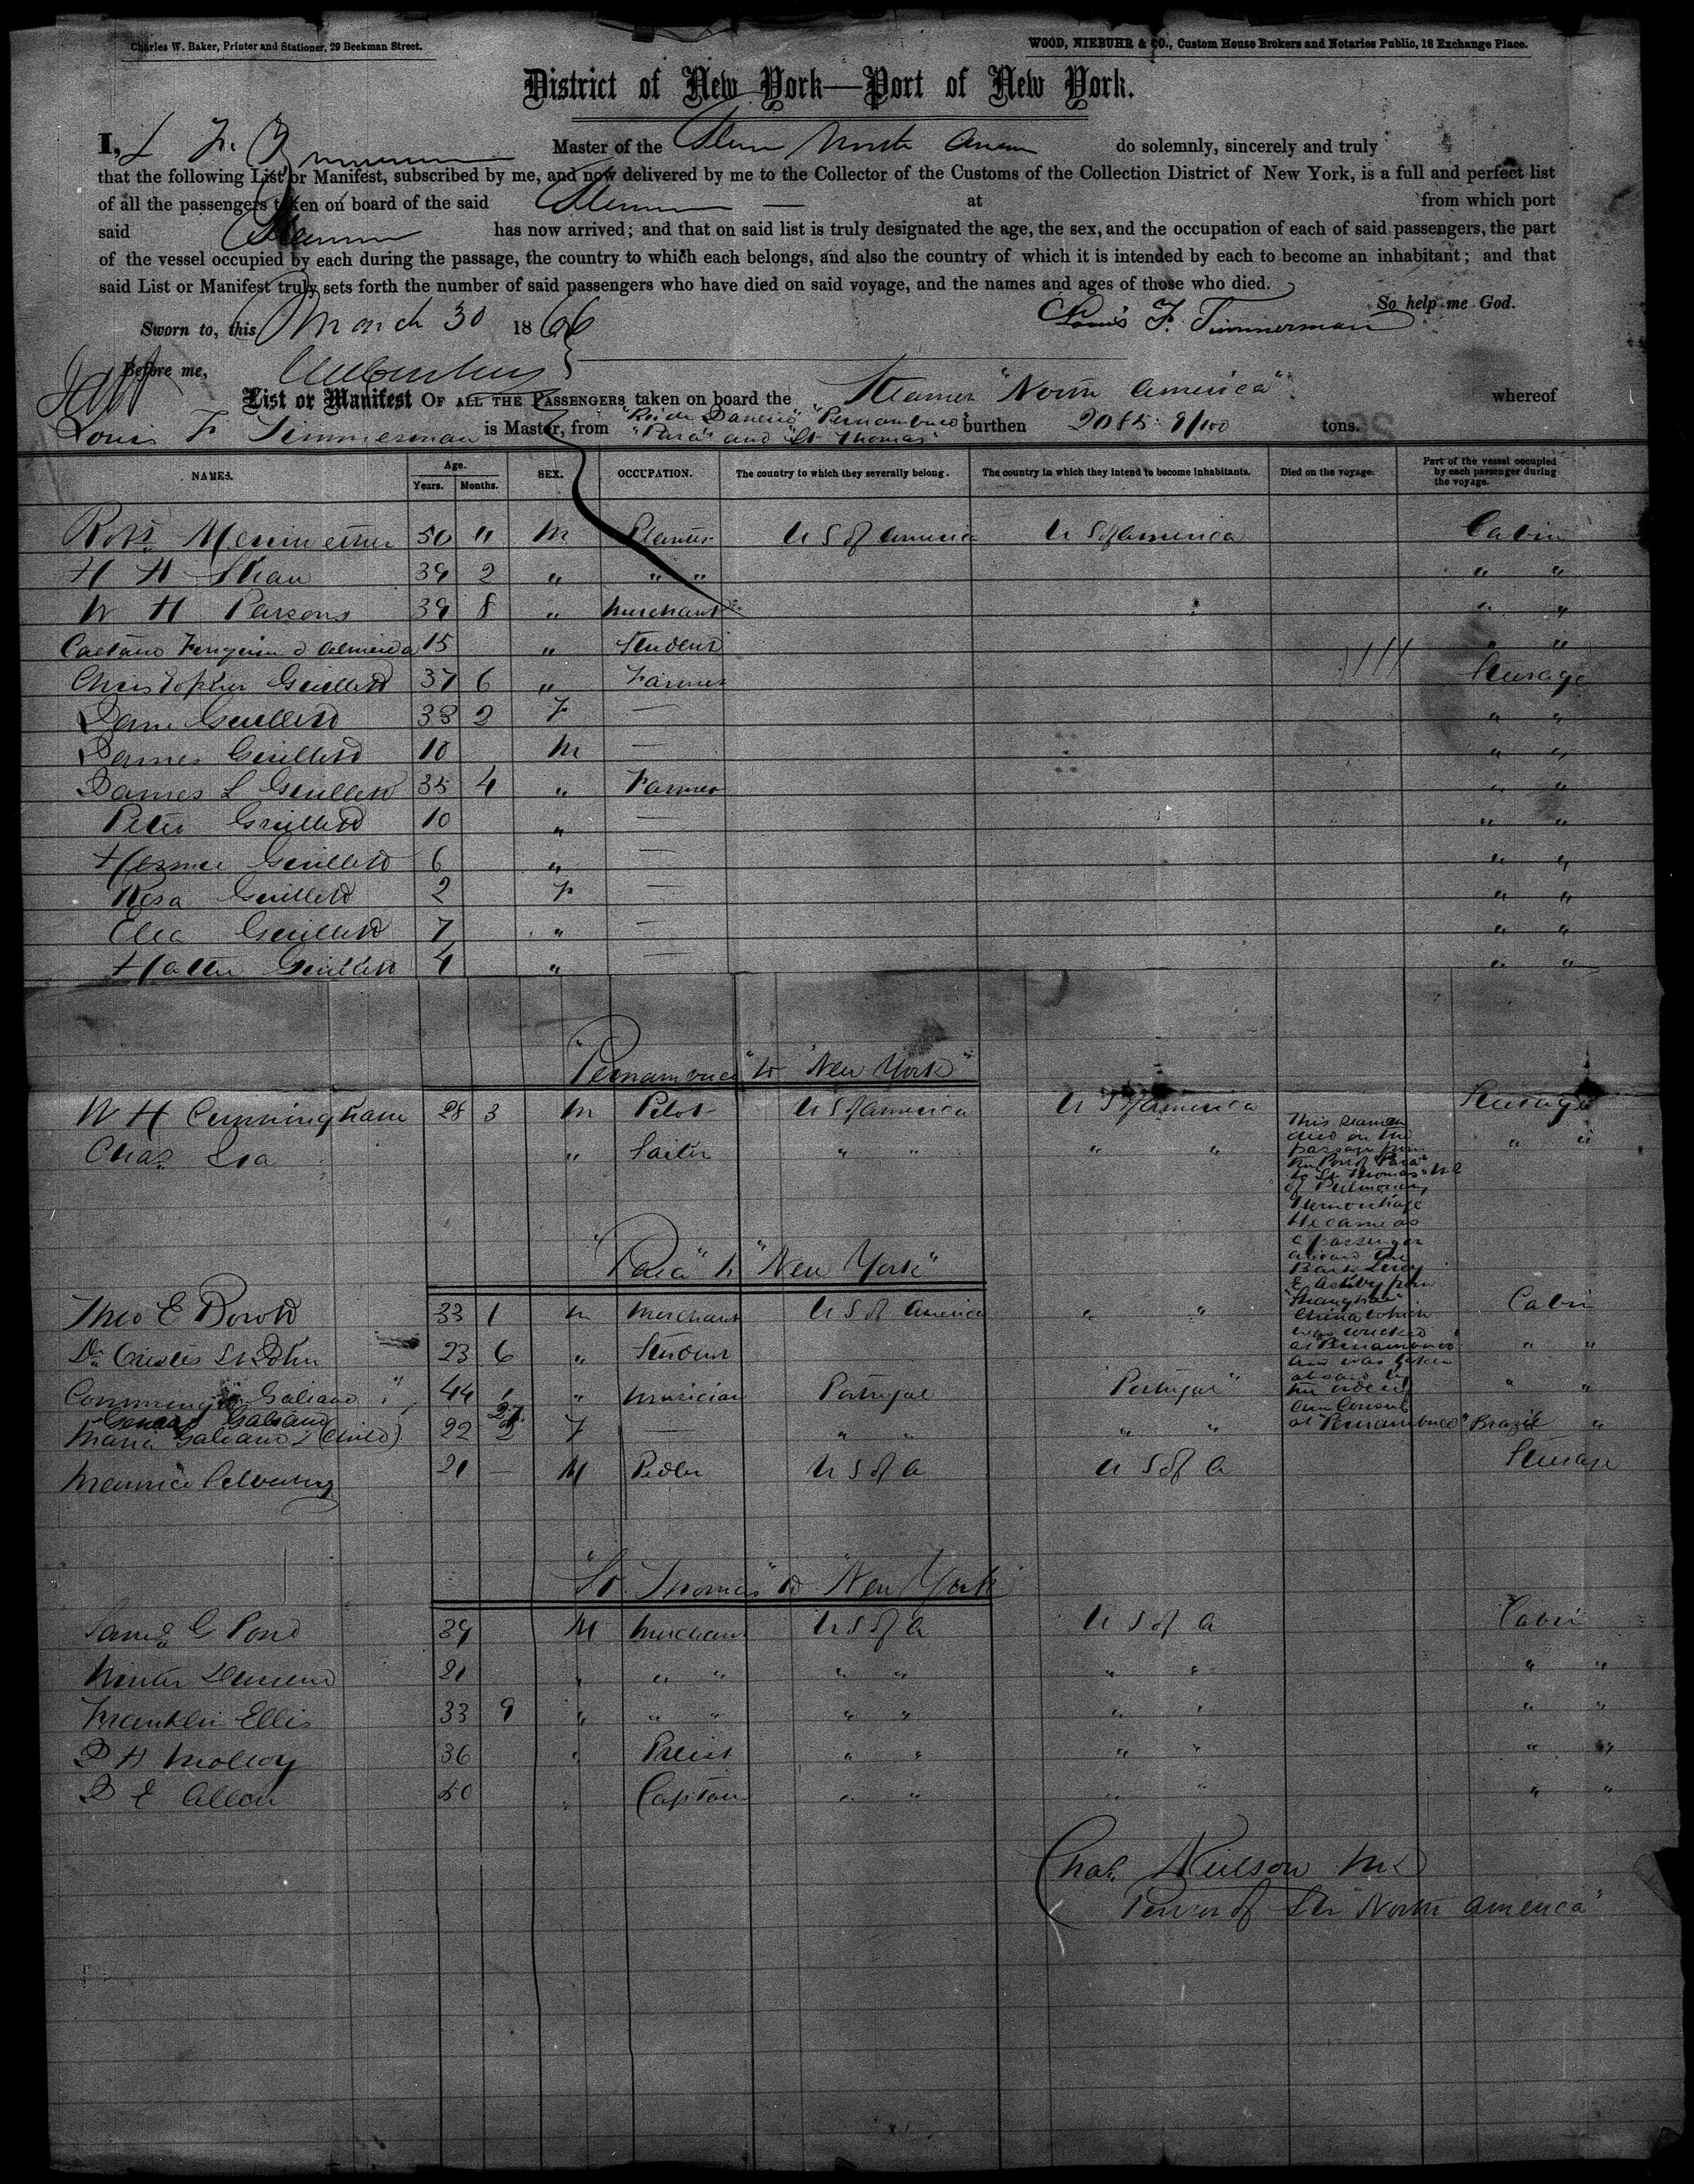 Charles W. Baker, Printer and Stationer, 29 Beekman Street.
WOOD, NIEBUHR & CO., Custom House Brokers and Notaries Public, 18 Exchange Place.
District of New York—Port of New York.
I, L F. Master of the North do solemnly, sincerely and truly
that the following List or Manifest, subscribed by me, and now delivered by me to the Collector of the Customs of the Collection District of New York, is a full and perfect list
of all the passengers taken on board of the said Steamer — at from which port
said Steamer has now arrived; and that on said list is truly designated the age, the sex, and the occupation of each of said passengers, the part
of the vessel occupied by each during the passage, the country to which each belongs, and also the country of which it is intended by each to become an inhabitant; and that
said List or Manifest truly sets forth the number of said passengers who have died on said voyage, and the names and ages of those who died.
So help me God.
Sworn to, this March 30 1866 Louis F. Timmerman
Before me,
List or Manifest OF ALL THE PASSENGERS taken on board the Steamer "North America" whereof
Louis F Timmerman is Master, from "Rio de Janeiro" "Pernambuco" "Para" and "St Thomas" burthen 2085 9/100 tons.
NAMES. Age. Years. Months. SEX. OCCUPATION. The country to which they severally belong. The country in which they intend to become inhabitants. Died on the voyage. Part of the vessel occupied by each passenger during the voyage.
Robt Meriwether 50 " M Planter U S of America U S of America Cabin
H H Shaw 39 2 " " " " "
W H Parsons 39 8 " Merchant " "
Caetano d Almeida 15 " Student " "
Christopher 37 6 " Farmer Steerage
Jane 33 2 F — " "
James 10 M — " "
James L 35 4 " Farmer " "
Peter 10 " — " "
6 " — " "
Rosa 2 F — " "
Ella 7 " — " "
Hattie 4 " — " "
"Pernambuco" to "New York"
W H Cunningham 28 3 M Pilot U S of America U S of America Steerage
Chas " Sailor " " " " " "
This seaman
died on the
passage from
the Port of "Para"
to "St Thomas"
of Pulmonary
Hemorrhage
He came as
a passenger
aboard the
Bark Leroy
E Ashby from
"Shanghai"
China which
was wrecked
at "Pernambuco"
and was taken
the order of
Am Consul
at "Pernambuco" Brazil
"Para" to "New York"
Theo E 33 1 M Merchant U S of America " " Cabin
Dr St John 23 6 " Student " "
Galiano 44 " Musician Portugal Portugal " "
Galiano
Maria Galiano (child) 22 F — " " " " "
Maurice 21 — M Pedler U S of A U S of A Steerage
"St. Thomas" to "New York"
Saml G Pond 39 M Merchant U S of A U S of A Cabin
21 " " " " " " " " "
Franklin Ellis 33 9 " " " " " " " " "
Molloy 36 " Preist " " " " " "
E Allen 50 " Captain " " " " " "
Chas. Neilson
Purser of Str "North America"